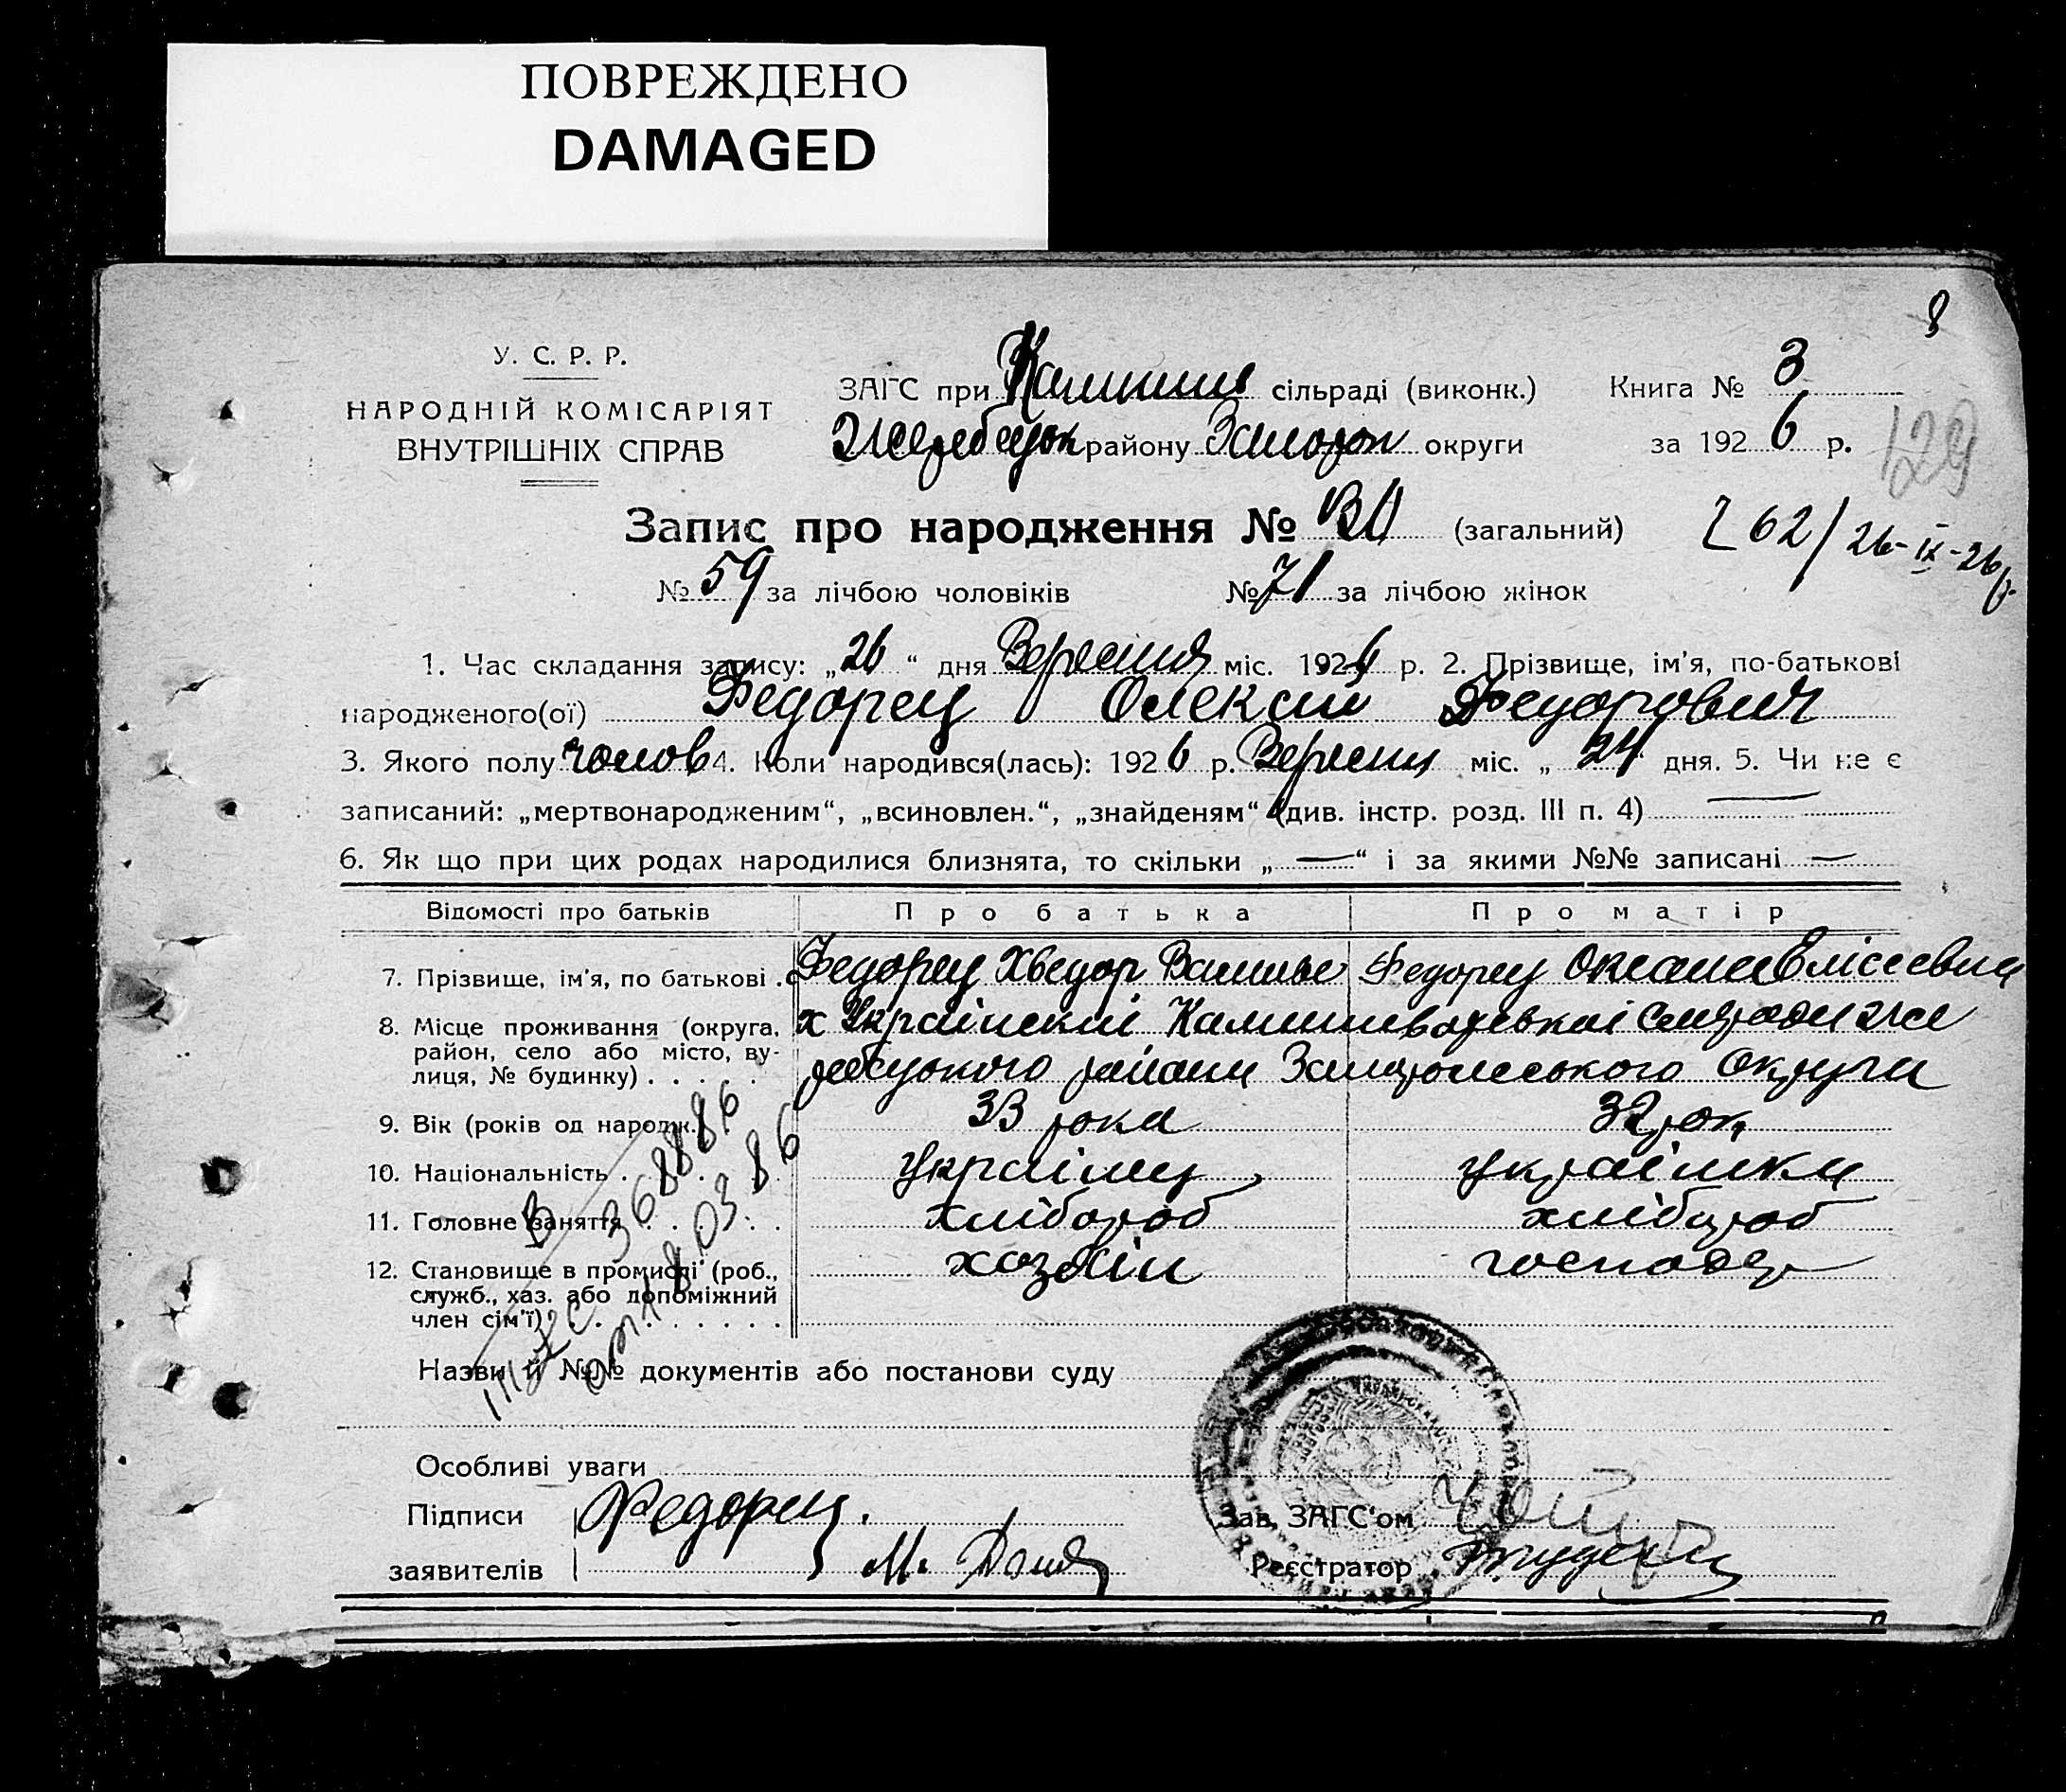 ПОВРЕЖДЕНО
DAMAGED
8
У. С. Р. Р.
НАРОДНІЙ КОМІСАРІЯТ
ВНУТРІШНІХ СПРАВ
ЗАГС при сільраді (виконк.) Книга № 3
району округи за 1926 р.
129
Запис про народження № (загальний)
62/26-IX-26р.
№ 59 за лічбою чоловіків № 71 за лічбою жінок
1. Час складання запису: „26“ дня Вересння міс. 1926 р. 2. Прізвище, ім'я, по-батькові
народженого(ої) Федорец Олексій Федорович
3. Якого полу чолов 4. Коли народився(лась): 1926 р. Вересня міс. „24“ дня. 5. Чи не є
записаний: „мертвонародженим“, „всиновлен.“, „знайденям“ (див. інстр. розд. III п. 4) —
6. Як що при цих родах народилися близнята, то скільки „—“ і за якими №№ записані —
Відомості про батьків Про батька Про матір
7. Прізвище, ім'я, по батькові . Федорец Хведор Федорец Оксана Елісеевна
8. Місце проживання (округа, район, село або місто, вулиця, № будинку) . . . . . х Украінскій
району Округи
9. Вік (років од народж.) 33 рока 32 рок
10. Національність . . . . украінец украінка
11. Головне заняття . . . . . хлібороб хлібороб
12. Становище в промислі (роб., хозяін господ
служб., хаз. або допоміжний
член сім'ї) . . . . . . . . .
368886
от 18 03 86
Назви й №№ документів або постанови суду
Особливі уваги
Підписи Федорец. Зав. ЗАГС'ом
заявителів М. Реєстратор